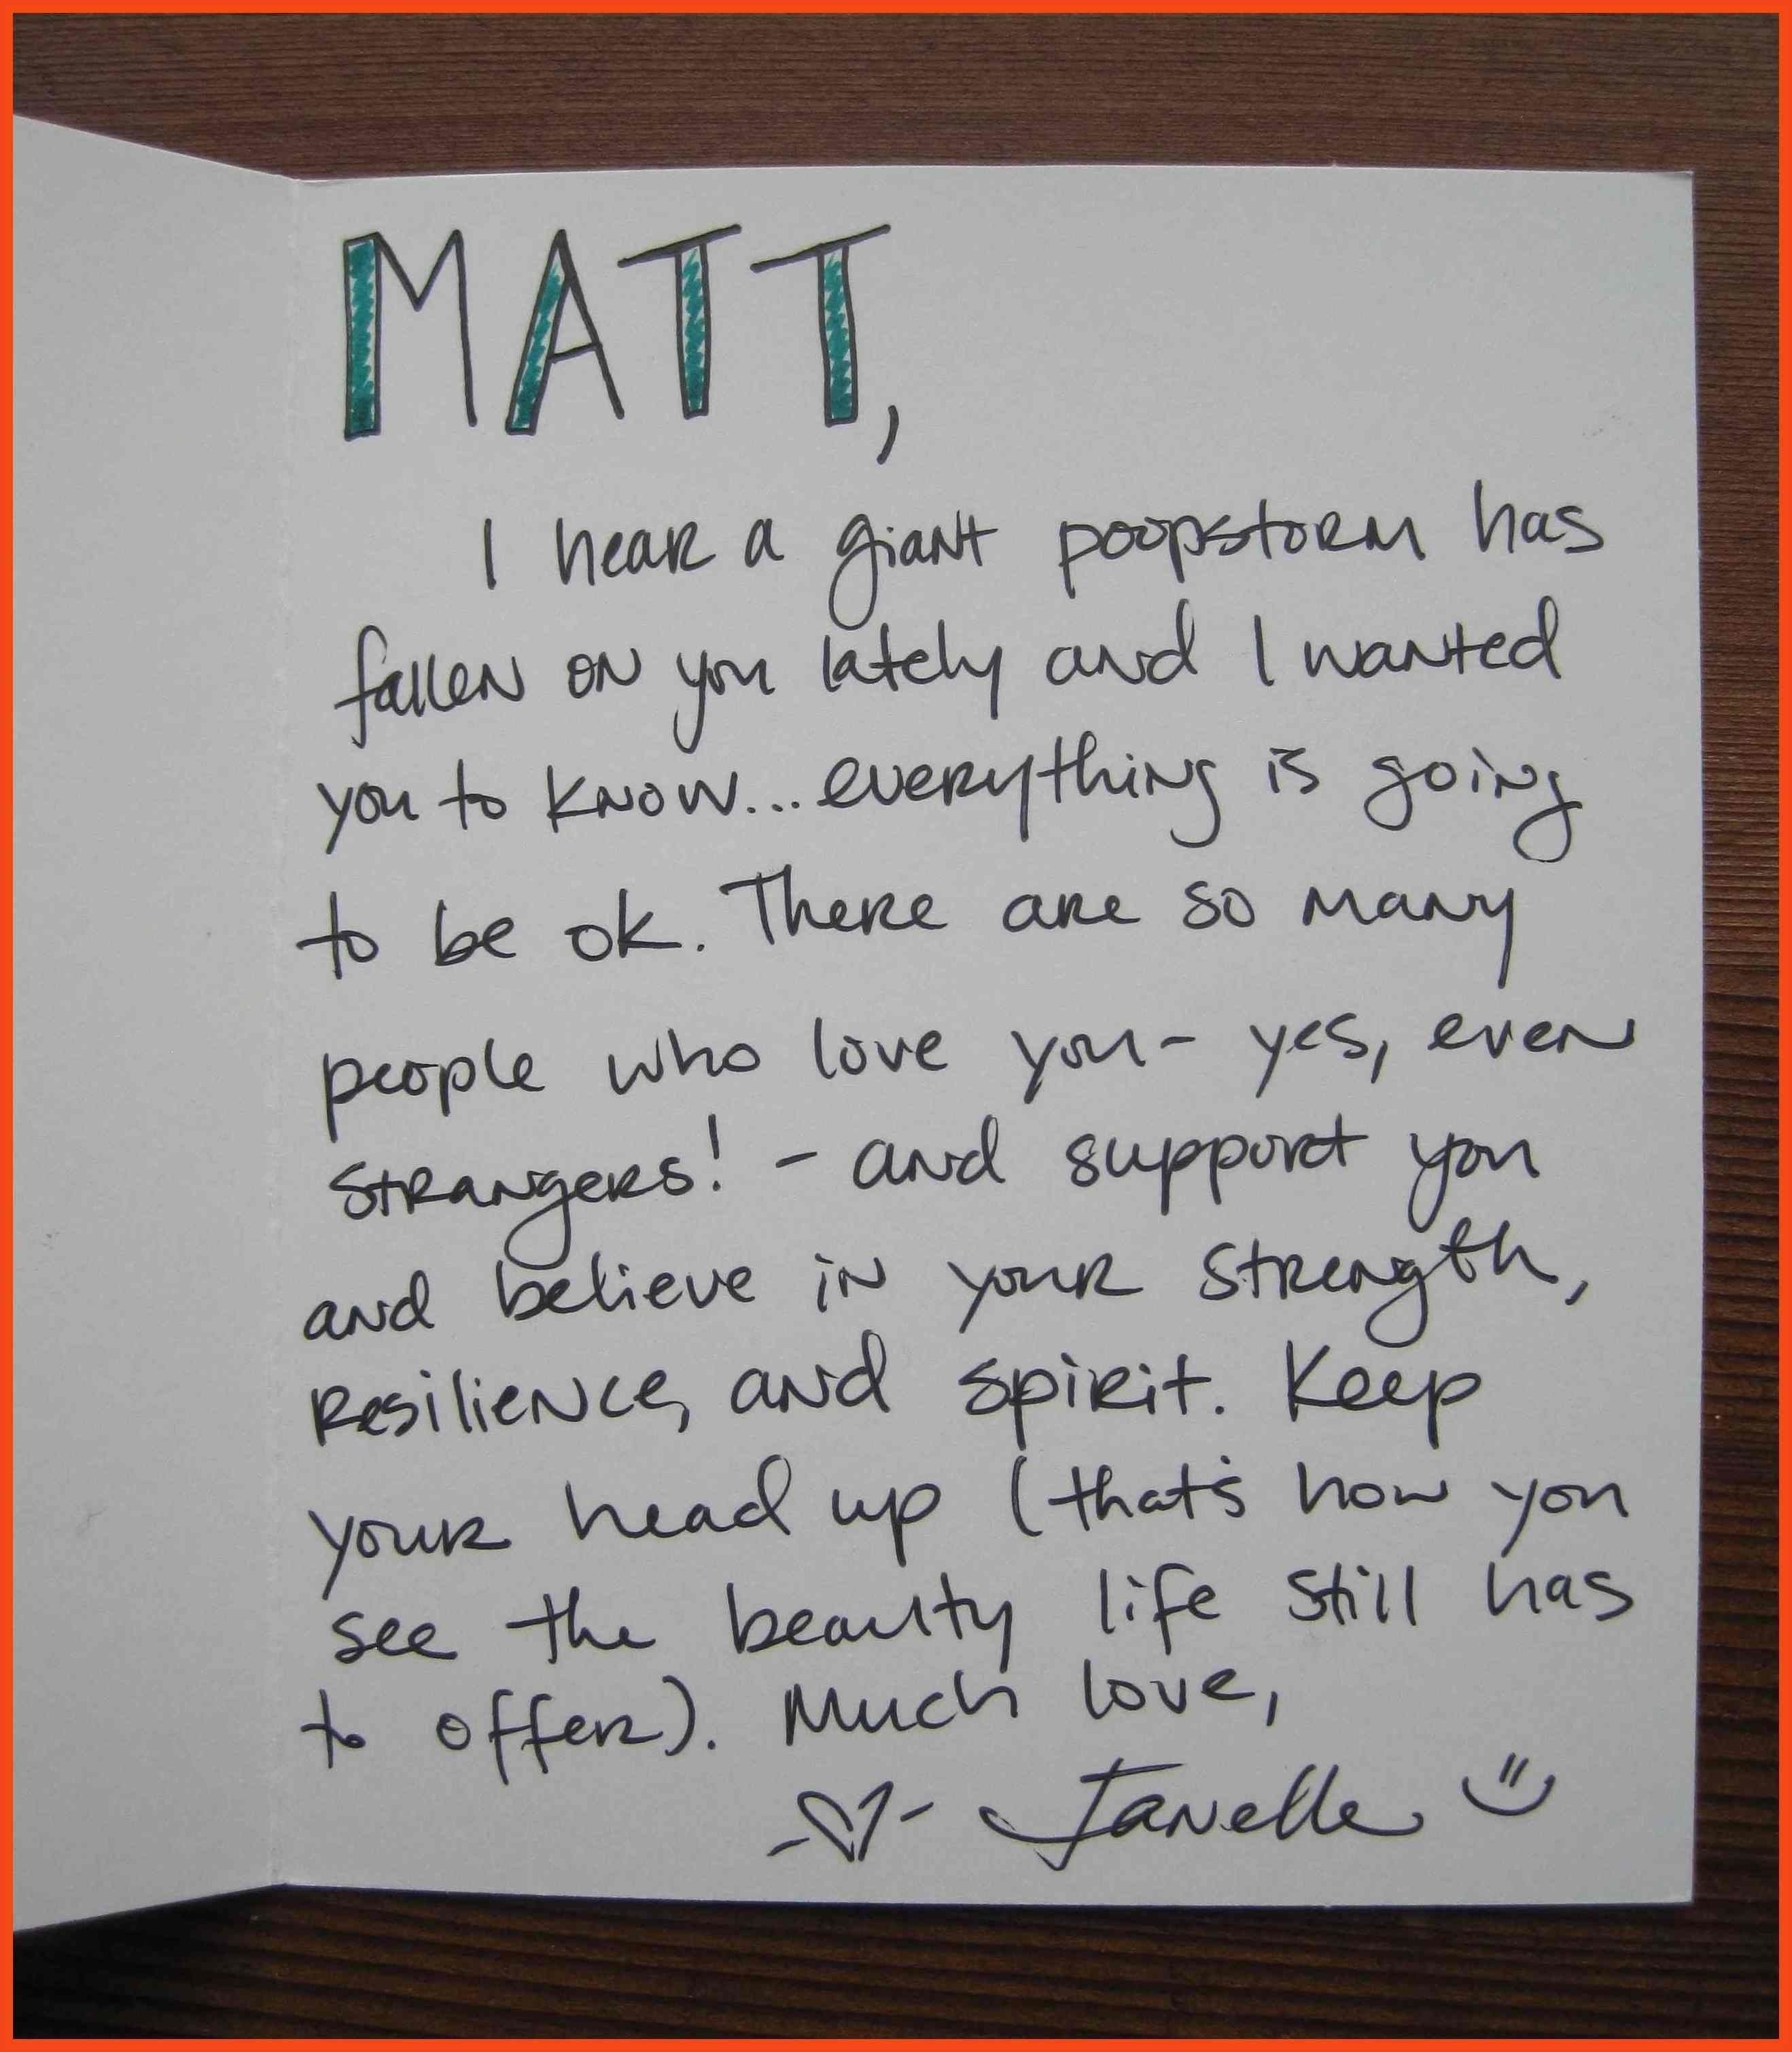 MATT,
I hear a giant poopstorm has
fallen on you lately and I wanted
you to know... everything is going
to be ok. There are so many
people who love you - yes, even
strangers! - and support you
and believe in your strength,
resilience, and spirit. Keep
your head up (that's how you
see the beauty life still has
to offer). Much love,
-♡- Janelle